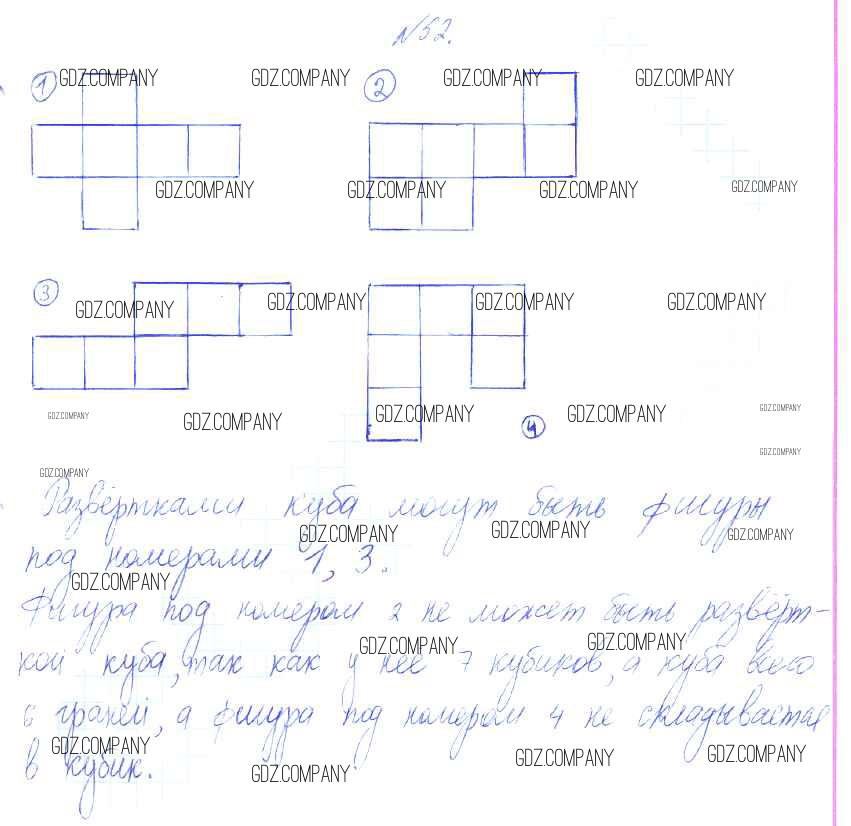 №52.
1 GDZ.COMPANY GDZ.COMPANY 2 GDZ.COMPANY GDZ.COMPANY
GDZ.COMPANY GDZ.COMPANY GDZ.COMPANY GDZ.COMPANY
3 GDZ.COMPANY GDZ.COMPANY GDZ.COMPANY GDZ.COMPANY
GDZ.COMPANY GDZ.COMPANY GDZ.COMPANY GDZ.COMPANY GDZ.COMPANY
4
GDZ.COMPANY
GDZ.COMPANY
Развёртками куба могут быть фигуры
GDZ.COMPANY GDZ.COMPANY GDZ.COMPANY
под номерами 1, 3.
GDZ.COMPANY
Фигура под номером 2 не может быть развёрт-
GDZ.COMPANY GDZ.COMPANY
кой куба, так как у неё 7 кубиков, а куба всего
6 граней, а фигура под номером 4 не складывается
GDZ.COMPANY GDZ.COMPANY GDZ.COMPANY
в кубик.
GDZ.COMPANY